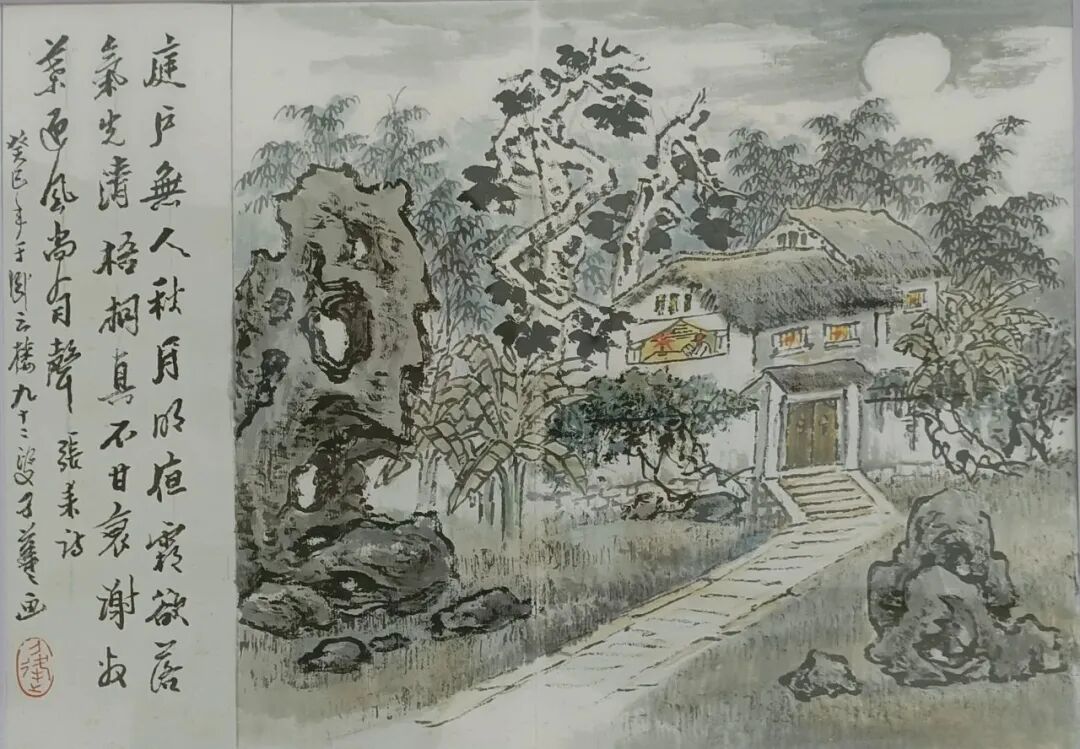 庭戶無人秋月明夜霜欲落
氣先清梧桐真不甘衰謝数
葉迎風尚有聲 張耒詩
癸巳年于云楼九十二叟子画